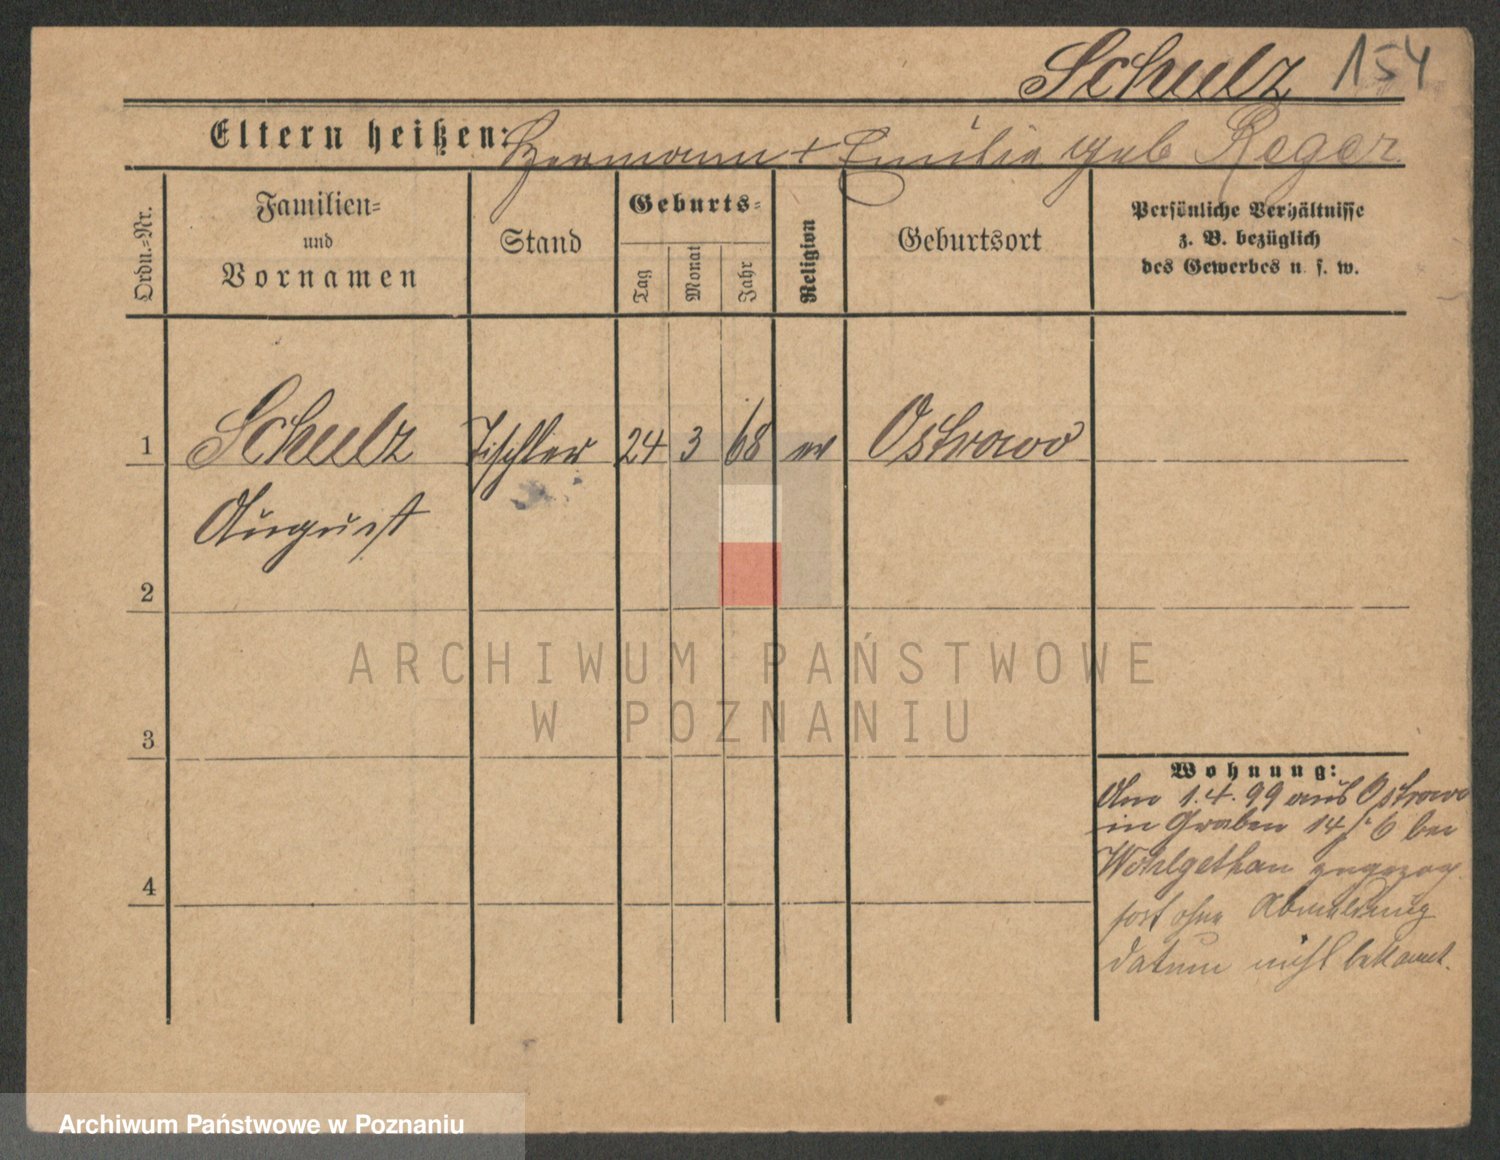 Schulz 154
Eltern heißen: Hermann + Emilie geb Reger
Ordn.=Nr.
Familien=
und
Vornamen
Stand
Geburts=
Tag
Monat
Jahr
Religion
Geburtsort
Persönliche Verhältnisse
z. B. bezüglich
des Gewerbes u. s. w.
1 Schulz Tischler 24 3 68 ev Ostrowo
August
2
ARCHIWUM PAŃSTWOWE
W POZNANIU
3
Wohnung:
Am 1.4.99 aus Ostrowo
in Graben 14 b bei
Wohlgethan zugezog.
4
fort ohne Abmeldung
datum nicht bekannt.
Archiwum Państwowe w Poznaniu